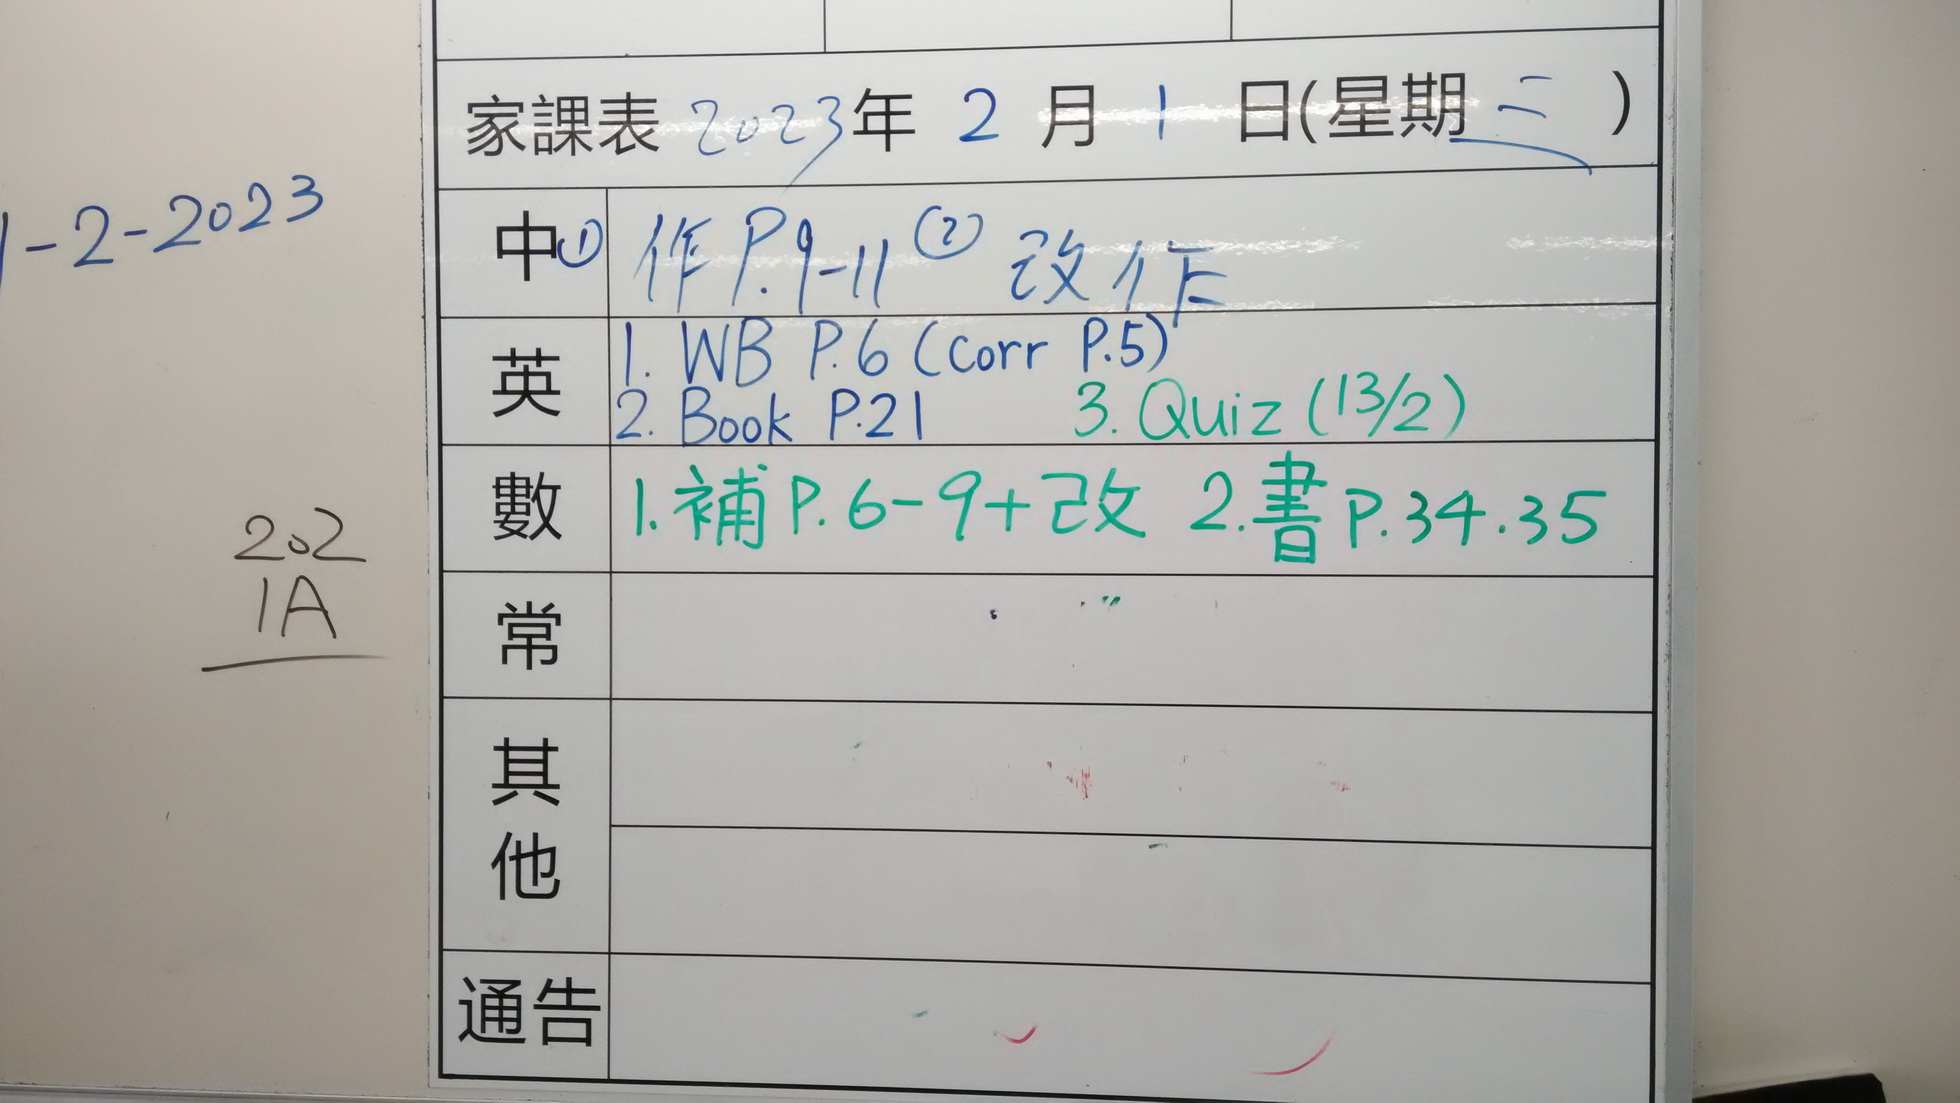 家課表 2023年 2 月 1 日(星期 三 )
1-2-2023
中 ① 作 P.9-11 ② 改作
英 1. WB P.6 (Corr P.5)
2. Book P.21 3. Quiz (13/2)
數 1. 補 P.6-9+改 2. 書 P.34.35
202
1A
常
其他
通告